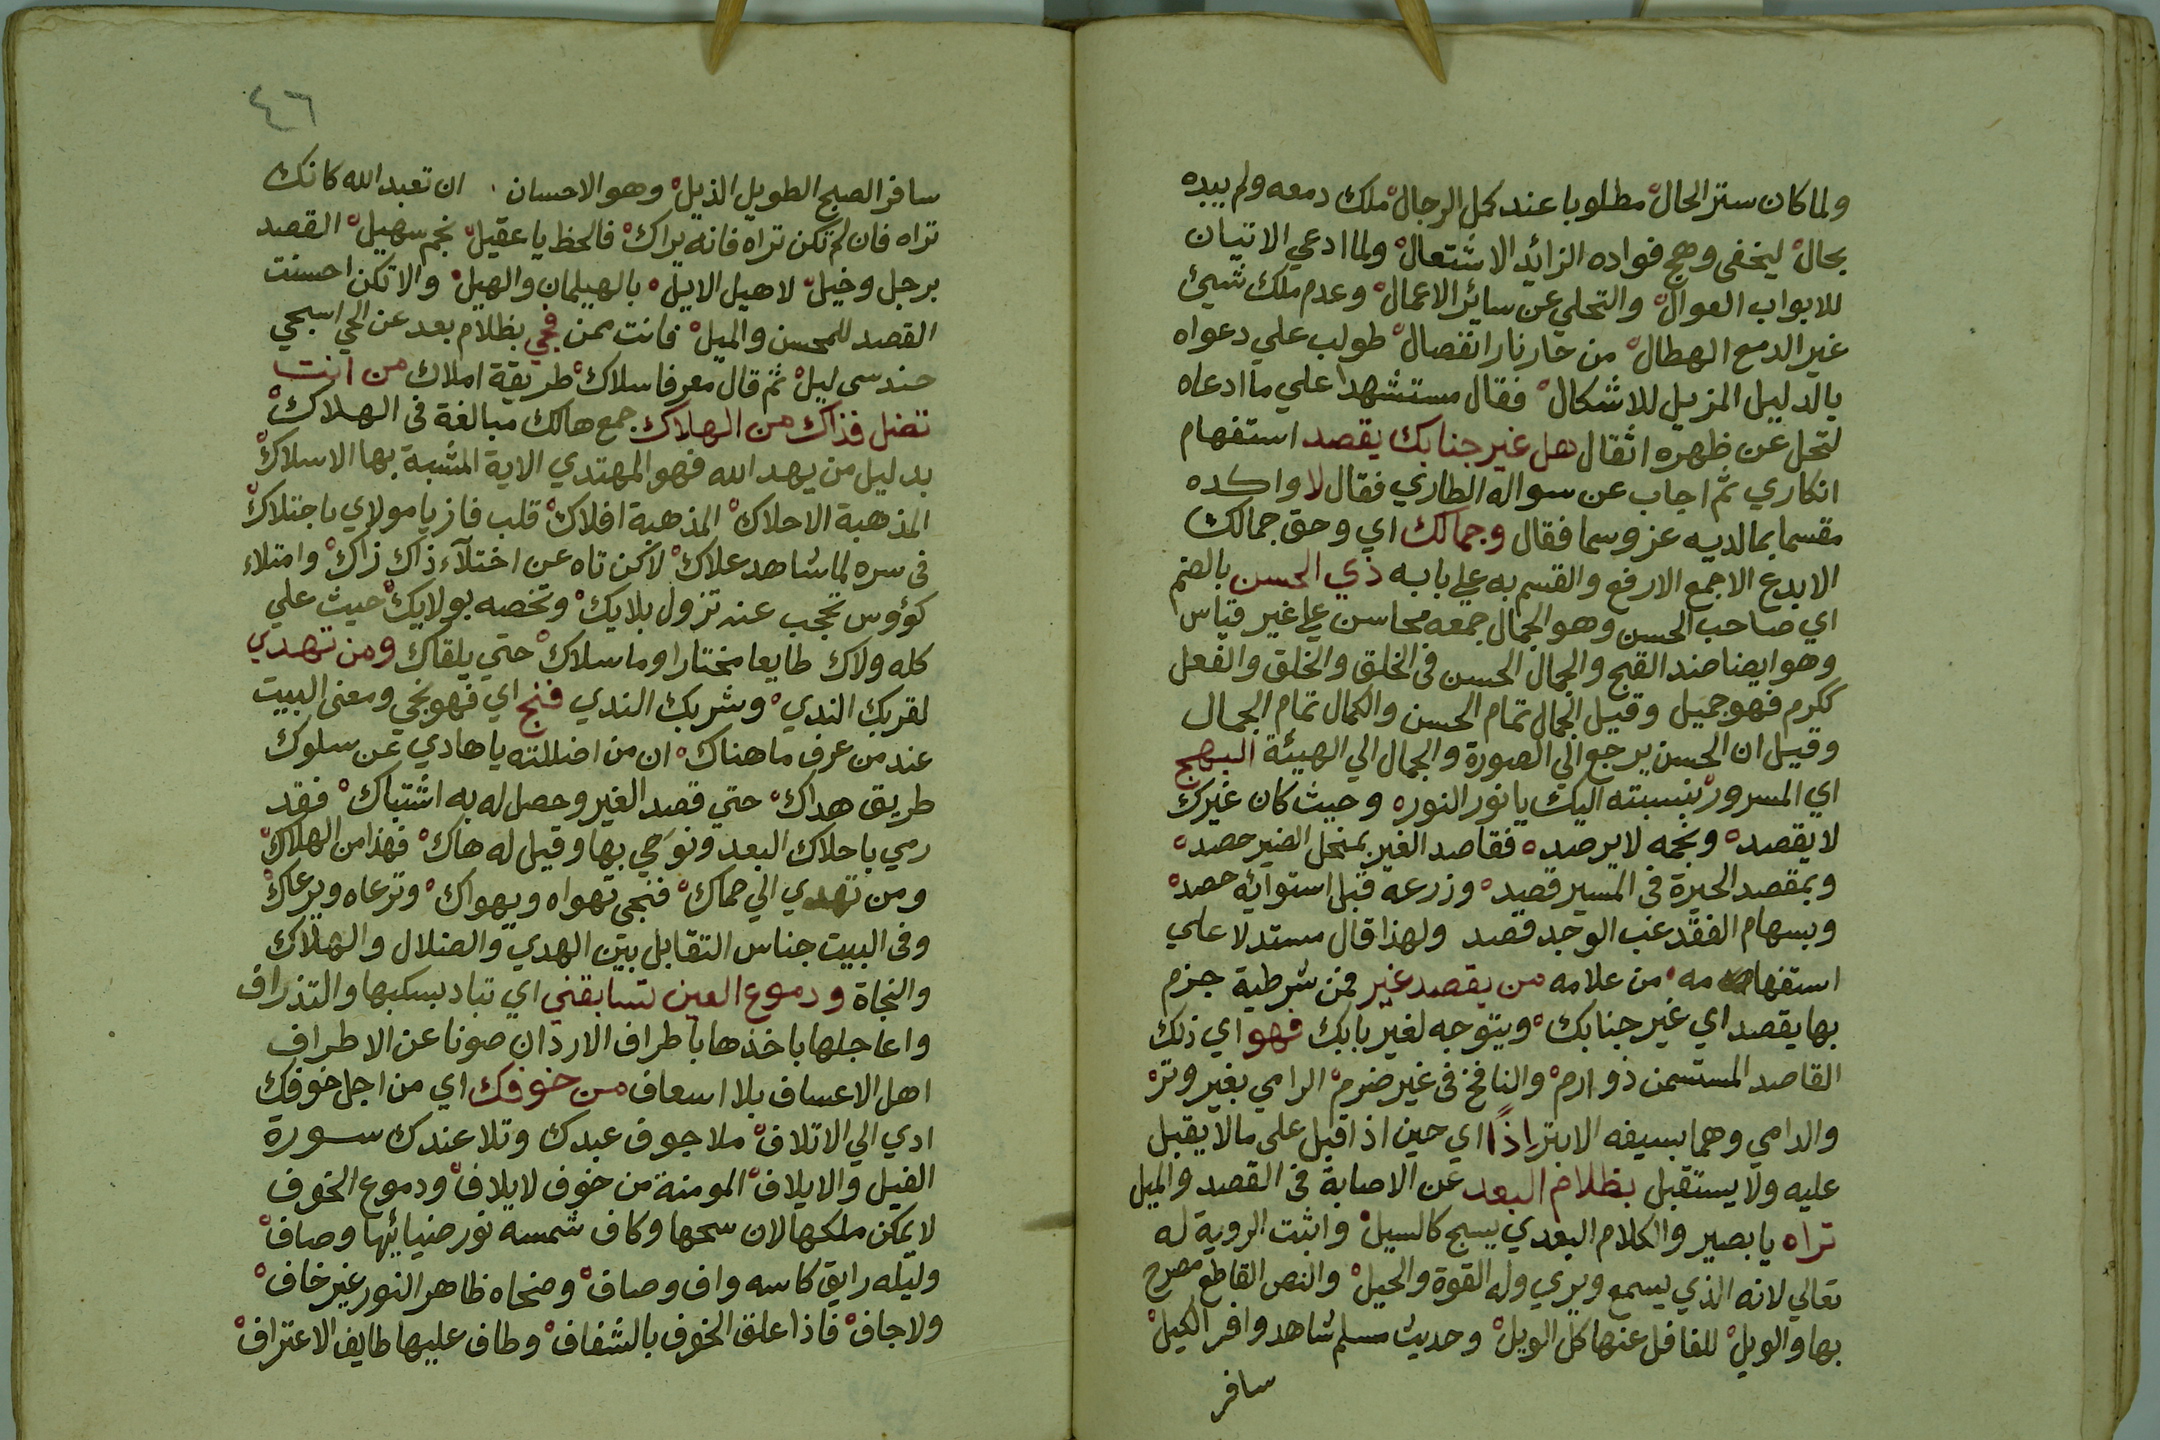 ولما كان ستر الحال مطلوبا عند كمل الرجال ملك دمعه ولم يبده
بحال ليخفى وهج فواده الزائد الاشتعال ولما ادعي الاتيان
للابواب العوال والتحلي عن سائر الاعمال وعدم ملك شيئ
غير الدمع الهطال من حار نار انفصال طولب علي دعواه
بالدليل المزيل للاشكال فقال مستشهدا علي ما ادعاه
لتحل عن ظهره اثقال هل غير جنابك يقصد استفهام
انكاري ثم اجاب عن سواله الطاري فقال لا واكده
مقسما بما لديه عز وسما فقال وجمالك اي وحق جمالك
الابدع الاجمع الارفع والقسم به علي بابه ذي الحسن بالضم
اي صاحب الحسن وهو الجمال جمعه محاسن علي غير قياس
وهو ايضا ضد القبح والجمال الحسن فى الخلق والخلق والفعل
ككرم فهو جميل وقيل الجمال تمام الحسن والكمال تمام الجمال
وقيل ان الحسن يرجع الي الصورة والجمال الي الهيئة البهج
اي المسرور بنسبته اليك يا نور النور وحيث كان غيرك
لا يقصد ونجمه لا يرصد فقاصد الغير بمنجل الضير حصد
وبمقصد الحيرة فى المسير قصد وزرعه قبل استوائه حصد
وبسهام الفقد غب الوجد قصد ولهذا قال مستدلا علي
استفهامه من علامه من يقصد غير فمن شرطية جزم
بها يقصد اي غير جنابك ويتوجه لغير بابك فهو اي ذلك
القاصد المستسمن ذو ارم والنافخ فى غير ضرم الرامي بغير وتر
والدامي وهما بسيفه الابتر اذا اي حين اذ اقبل على ما لا يقبل
عليه ولا يستقبل بظلام البعد عن الاصابة فى القصد والميل
تراه يا بصير والكلام البعدي يسبح كالسيل واثبت الروية له
تعالي لانه الذي يسمع ويري وله القوة والحيل والنص القاطع مصرح
بها والويل للغافل عنها كل الويل وحديث مسلم شاهد وافر الكيل
سافر
٤٦
سافر الصبح الطويل الذيل وهو الاحسان ان تعبد الله كانك
تراه فان لم تكن تراه فانه يراك فالحظ يا عقيل نجم سهيل القصد
برجل وخيل لا هيل الابيل بالهيلمان والهيل والا تكن احسنت
القصد للمحسن والميل فانت ممن فجي بظلام بعد عن الحي اسبحي
حندسى ليل ثم قال معرفا سلاك طريقة املاك من انت
تضل فذاك من الهلاك جمع هالك مبالغة فى الهلاك
بدليل من يهد الله فهو المهتدي الاية المشبة بها الاسلاك
المذهبة الاحلاك المذهبة افلاك قلب فاز يا مولاي باجتلاك
فى سره لما شاهد علاك لاكن تاه عن اختلآء ذاك زاك وامتلاء
كؤوس تحجب عنه تزول بلايك وتخصه بولايك حيث علي
كله ولاك طايعا مختارا وما سلاك حتي يلقاك ومن تهدي
لقربك الندي وشربك الندي فنج اي فهو نجي ومعنى البيت
عند من عرف ما هناك ان من اضللته يا هادي عن سلوك
طريق هداك حتي قصد الغير وحصل له به اشتباك فقد
رمي باحلاك البعد ونوحي بها وقيل له هاك فهذا من الهلاك
ومن تهدي الي حماك فنجى تهواه ويهواك وترعاه ويرعاك
وفى البيت جناس التقابل بين الهدي والضلال والهلاك
والنجاة ودموع العين تسابقني اي تبادر بسكبها والتذراف
واعاجلها باخذها باطراف الاردان صونا عن الاطراف
اهل الاعساف بلا اسعاف من خوفك اي من اجل خوفك
ادي الي الاتلاف ملا جوف عبدك وتلا عندك سورة
الفيل والايلاف المومنة من خوف لايلاف ودموع الخوف
لا يمكن ملكها لان سحها وكاف شمسه نور ضيائها وصاف
وليله رايق كاسه واف وصاف وضحاه ظاهر النور غير خاف
ولا جاف فاذا علق الخوف بالشغاف وطاف عليها طايف الاعتراف